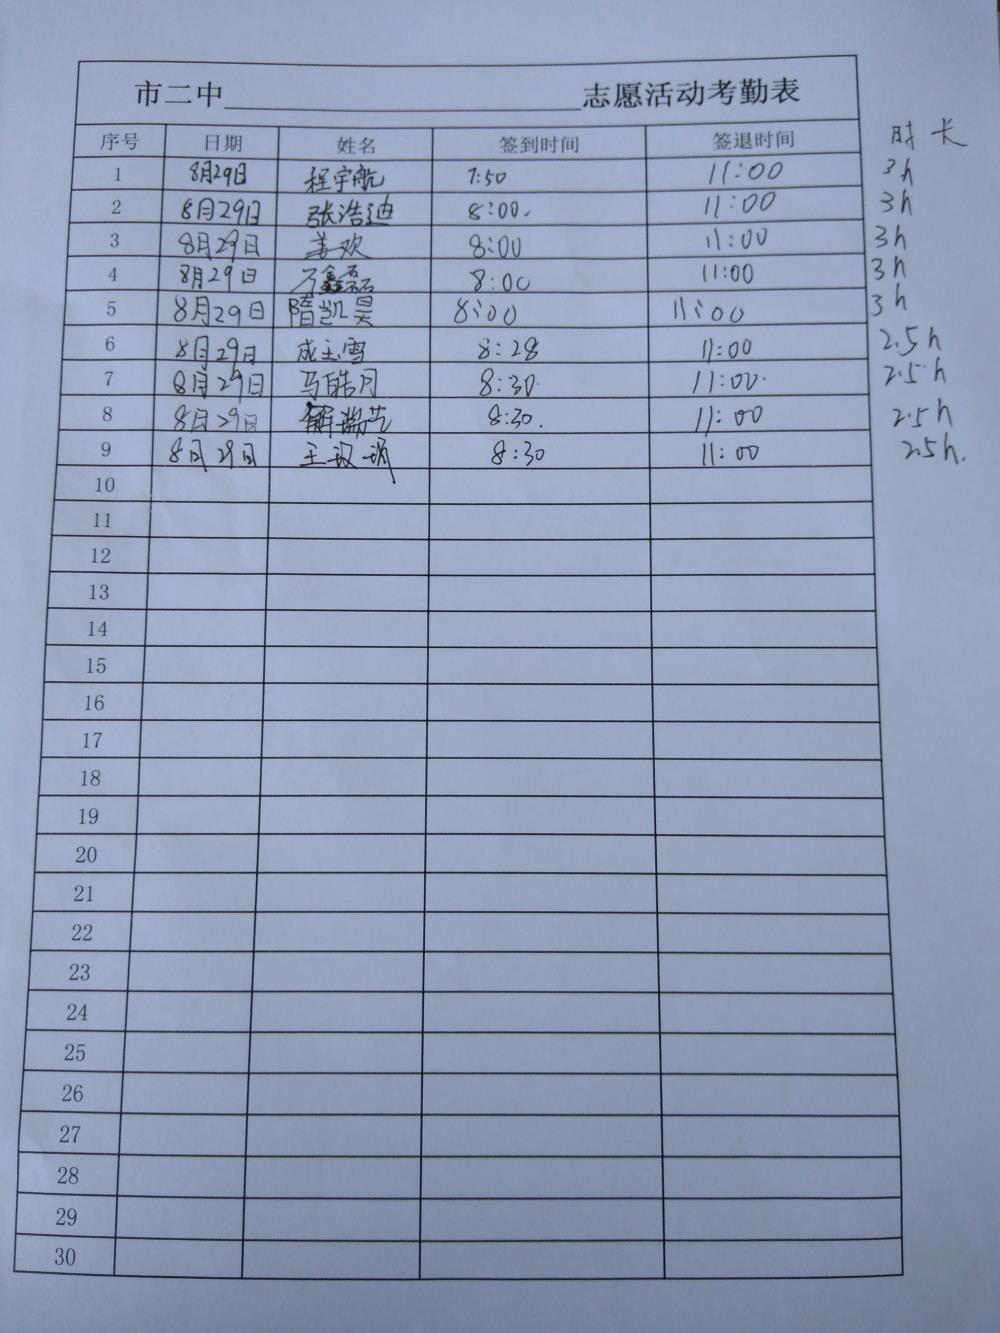 市二中____________________志愿活动考勤表
序号 日期 姓名 签到时间 签退时间 时长
1 8月29日 程宇航 7:50 11:00 3h
2 8月29日 张浩迪 8:00. 11:00 3h
3 8月29日 姜欢 8:00 11:00 3h
4 8月29日 万鑫磊 8:00 11:00 3h
5 8月29日 隋凯昊 8:00 11:00 3h
6 8月29日 成玉雪 8:28 11:00 2.5h
7 8月29日 马皓月 8:30. 11:00. 2.5h
8 8月29日 解瑞艺 8:30. 11:00 2.5h
9 8月29日 王 8:30 11:00 2.5h.
10
11
12
13
14
15
16
17
18
19
20
21
22
23
24
25
26
27
28
29
30